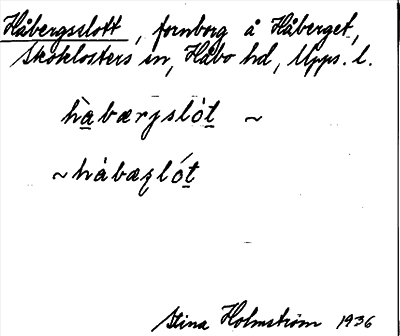 Håbergsslott, fornborg å Håberget,
Skoklosters sn, Håbo hd, Upps. l.
hàbærjslót ~
~ hábæzlót
Stina Holmström 1936